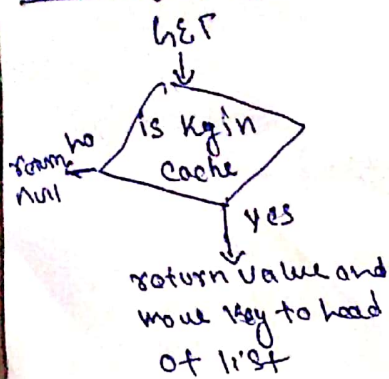 GET
is Key in
cache
no
return
null
yes
return value and
move key to head
of list